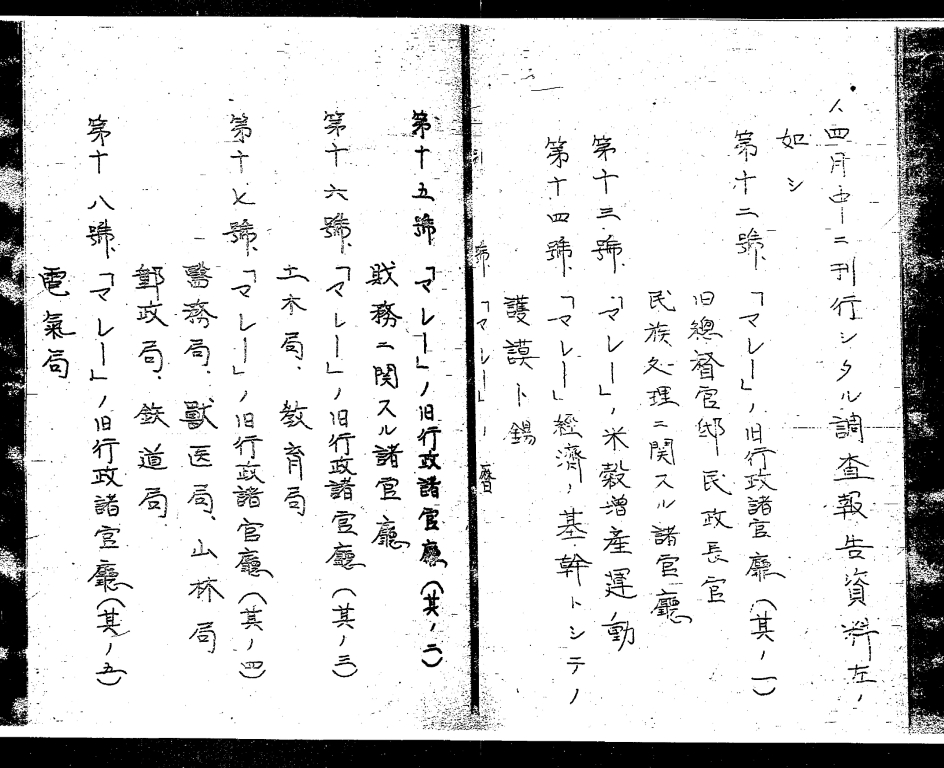 八四月中ニ刊行シタル調査報告資料左ノ
如シ
第十二號、「マレー」ノ旧行政諸官廳（其ノ一）
旧總督官邸 民政長官
民族処理ニ関スル諸官廳
第十三號、「マレー」ノ米穀増産運動
第十四號、「マレー」経済ノ基幹トシテノ
護謨ト錫
號 「マレー」
第十五號 「マレー」ノ旧行政諸官廳（其ノ二）
財務ニ関スル諸官廳
第十六號、「マレー」ノ旧行政諸官廳（其ノ三）
土木局、教育局
第十七號、「マレー」ノ旧行政諸官廳（其ノ四）
醫務局、獸医局、山林局
郵政局、鉄道局
第十八號、「マレー」ノ旧行政諸官廳（其ノ五）
電氣局